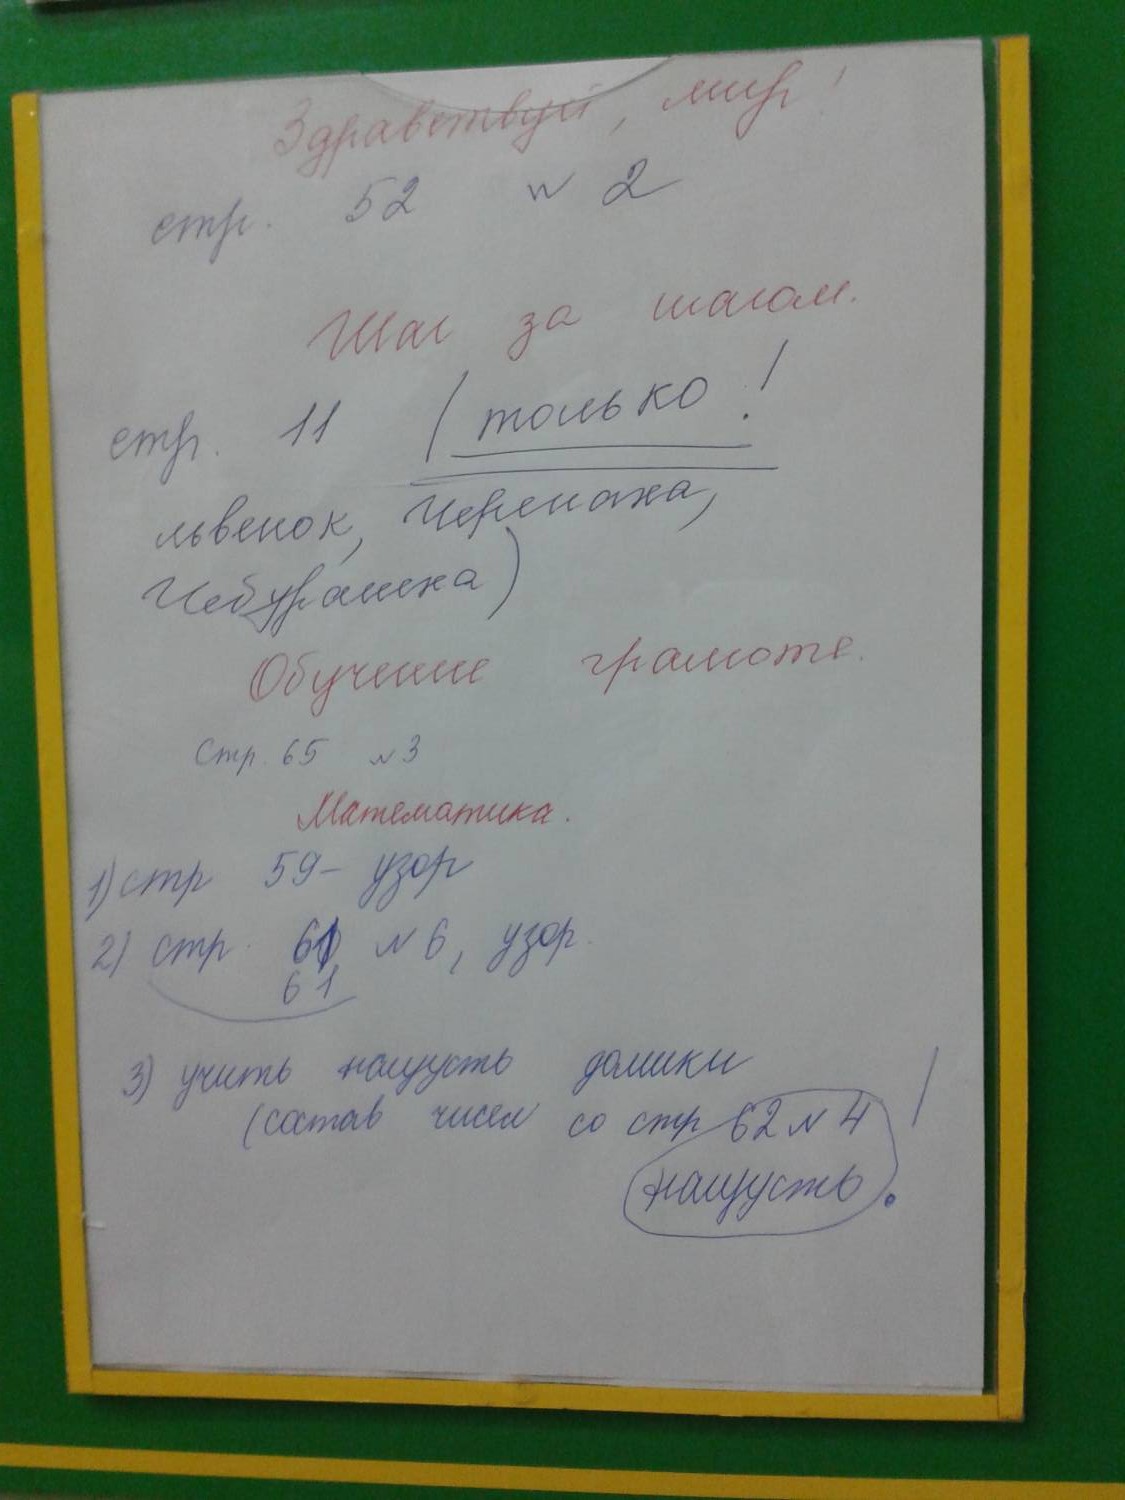 Здравствуй, мир!
стр. 52 № 2
Шаг за шагом.
стр. 11 (только!
львенок, Черепаха,
Чебурашка)
Обучение грамоте.
Стр. 65 № 3
Математика.
1) стр 59 - узор
2) стр. 61 № 6, узор.
61
3) учить наизусть домики
(состав чисел со стр 62 № 4
наизусть.